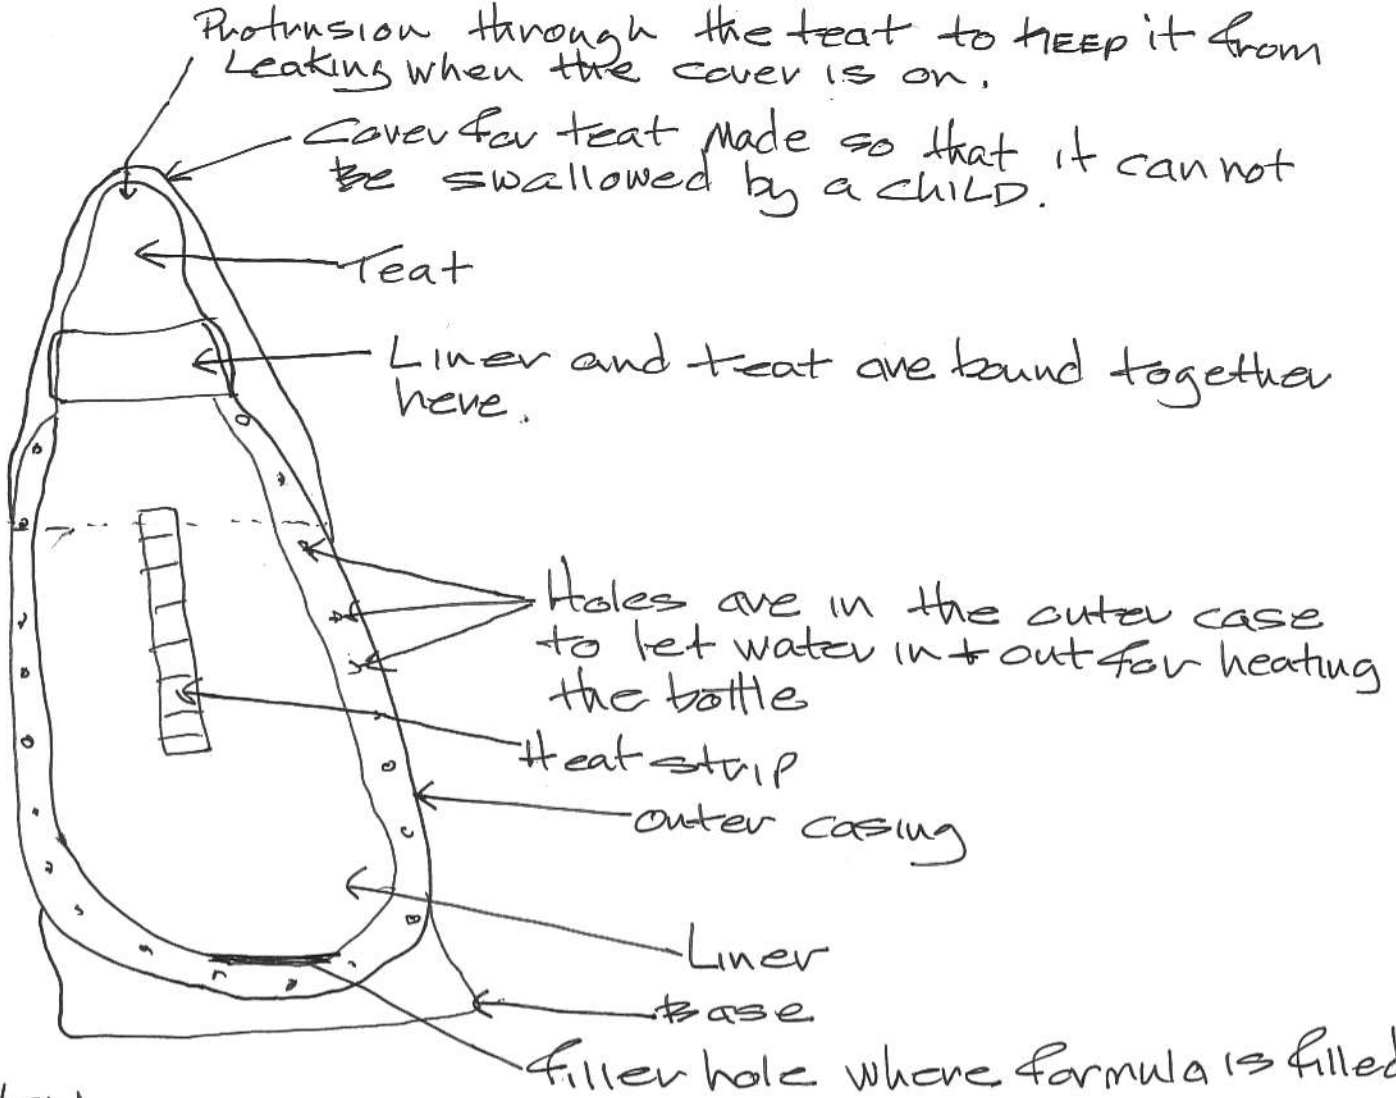 Protrusion through the teat to KEEP it from
Leaking when the cover is on.
Cover for teat Made so that it can not
be swallowed by a CHILD.
Teat
Liner and teat are bound together
here.
Holes are in the outer case
to let water in + out for heating
the bottle
Heat strip
outer casing
Liner
Base
filler hole where formula is filled